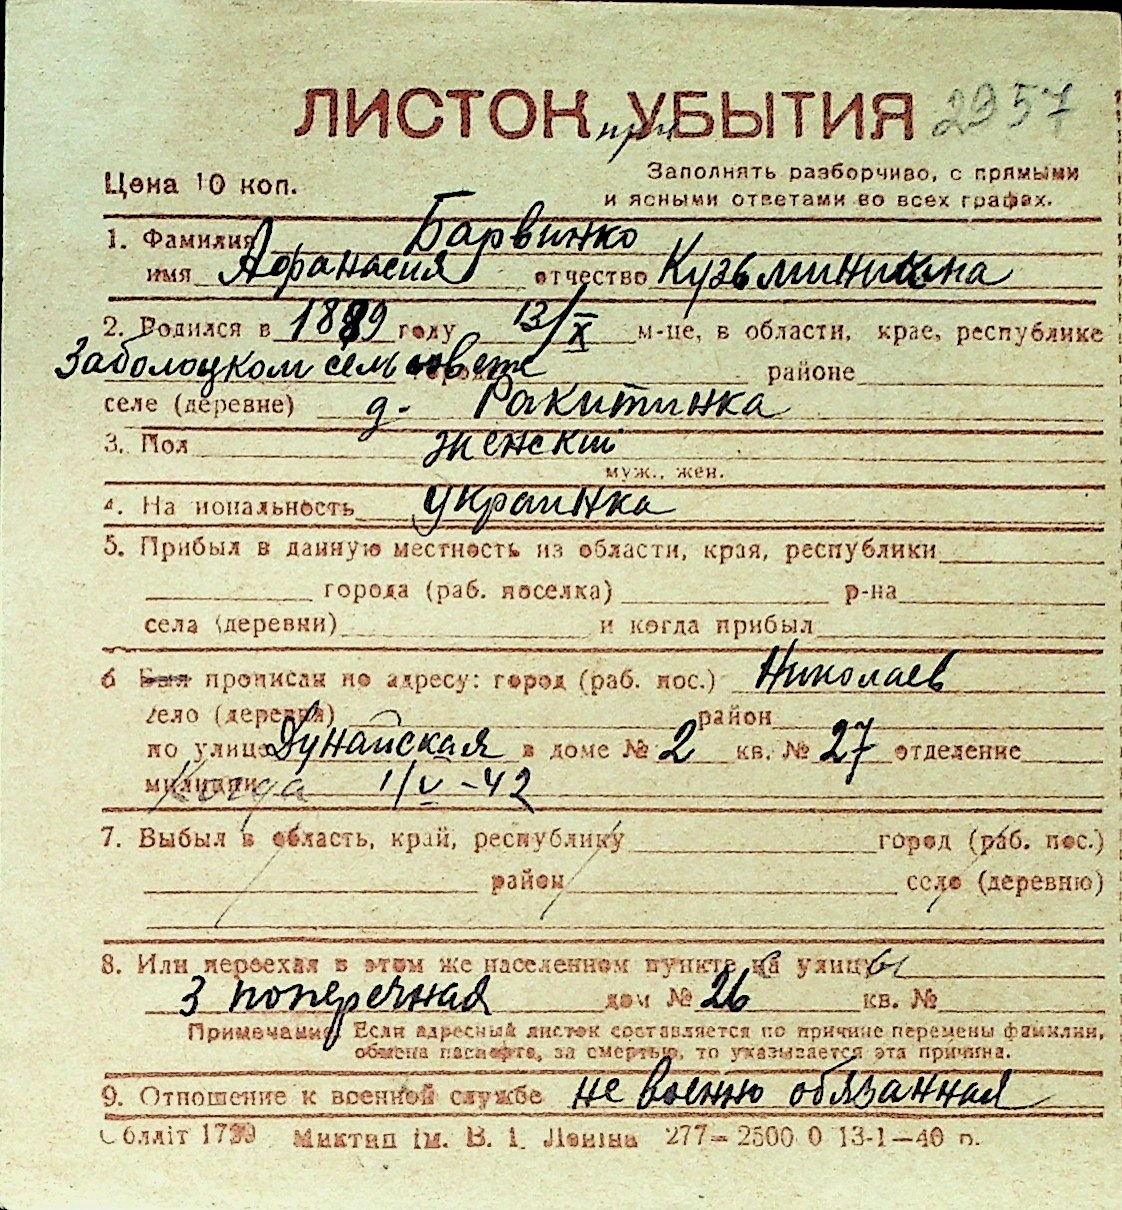 ЛИСТОК УБЫТИЯ 2957
при
Цена 10 коп.
Заполнять разборчиво, с прямыми
и ясными ответами во всех графах.
1. Фамилия Барвинко
имя Афанасия отчество Кузьминична
2. Родился в 1889 году 13/X м-це, в области, крае, республике
Заболоцком сельсовете районе
селе (деревне) д. Ракитинка
3. Пол женский
муж., жен.
4. Национальность украинка
5. Прибыл в данную местность из области, края, республики
города (раб. поселка) р-на
села (деревни) и когда прибыл
6 Был прописан по адресу: город (раб. пос.) Николаев
село (деревня) район
по улице Дунайская в доме № 2 кв. № 27 отделение
милиции Когда 1/V-42
7. Выбыл в область, край, республику город (раб. пос.)
район село (деревню)
8. Или переехал в этом же населенном пункте с улицы
3 поперечная дом № 26 кв. №
Примечание: Если адресный листок составляется по причине перемены фамилии,
обмена паспорта, за смертью, то указывается эта причина.
9. Отношение к военной службе не военно обязанная
Облліт 1799 Миктип ім. В. І. Леніна 277—2500 0 13-1—40 р.